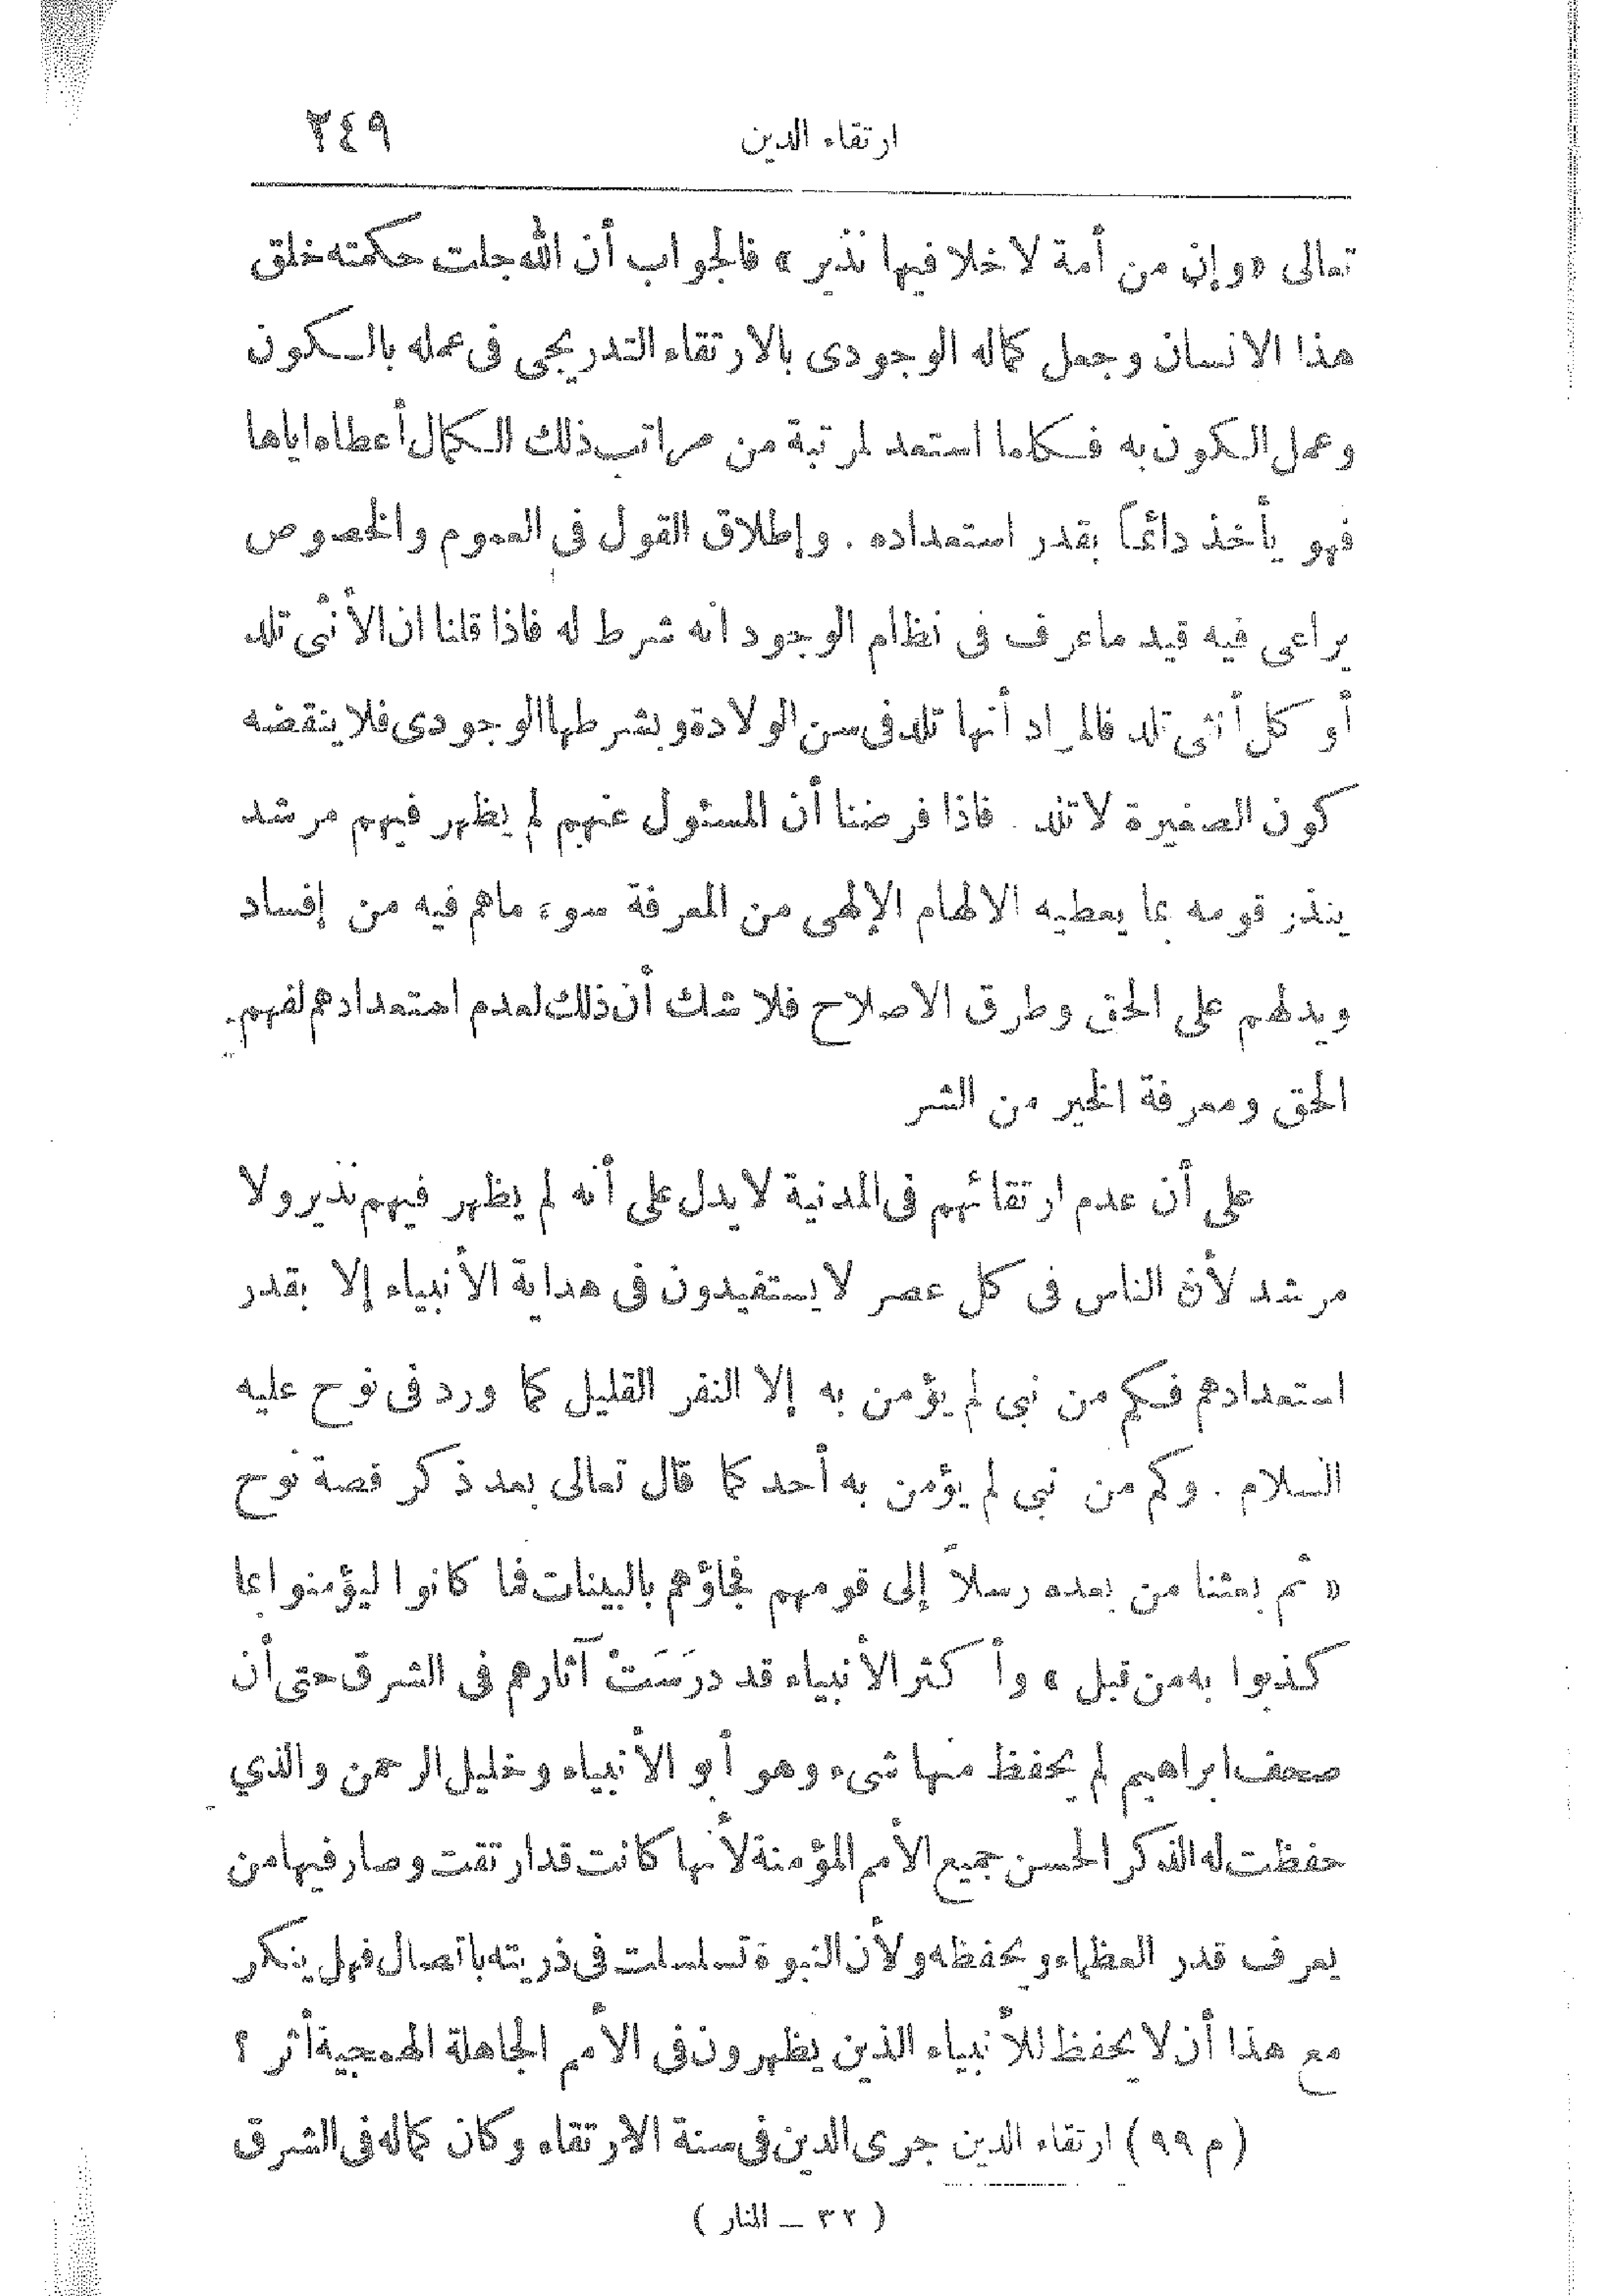 ارتقاء الدين ٣٤٩
تعالى «وإن من أمة لا خلا فيها نذير» فالجواب أن الله جلت حكمته خلق
هذا الانسان وجعل كماله الوجودى بالارتقاء التدريجى فى عمله بالكون
وعمل الكون به فكلما استعد لمرتبة من مراتب ذلك الكمال أعطاه اياها
فهو يأخذ دائماً بقدر استعداده . وإطلاق القول فى العموم والخصوص
يراعى فيه قيد ماعرف فى نظام الوجود انه شرط له فاذا قلنا ان الأنثى تلد
أو كل أنثى تلد فالمراد أنها تلد فى سن الولادة وبشرطها الوجودى فلا ينقضه
كون الصغيرة لا تلد . فاذا فرضنا أن المسئول عنهم لم يظهر فيهم مرشد
ينذر قومه بما يعطيه الالهام الإلهى من المعرفة سوء ماهم فيه من إفساد
ويدلهم على الحق وطرق الاصلاح فلا شك أن ذلك لعدم استعدادهم لفهم
الحق ومعرفة الخير من الشر
على أن عدم ارتقائهم فى المدنية لا يدل على أنه لم يظهر فيهم نذير ولا
مرشد لأن الناس فى كل عصر لا يستفيدون فى هداية الأنبياء إلا بقدر
استعدادهم فكم من نبى لم يؤمن به إلا النفر القليل كما ورد فى نوح عليه
السلام . وكم من نبى لم يؤمن به أحد كما قال تعالى بعد ذكر قصة نوح
« ثم بعثنا من بعده رسلاً إلى قومهم فجاؤهم بالبينات فما كانوا ليؤمنوا بما
كذبوا به من قبل » وأكثر الأنبياء قد درَسَتْ آثارهم فى الشرق حتى أن
صحف ابراهيم لم يحفظ منها شىء وهو أبو الأنبياء وخليل الرحمن والذي
حفظت له الذكر الحسن جميع الأمم المؤمنة لأنها كانت قد ارتقت وصار فيها من
يعرف قدر العظماء ويحفظه ولأن النبوة تسلسلت فى ذريته باتصال فهل ينكر
مع هذا أن لا يحفظ للأنبياء الذين يظهرون فى الأمم الجاهلة الهمجية أثر ؟
(م ٩٩) ارتقاء الدين جرى الدين فى سنة الارتقاء وكان كماله فى الشرق
( ٣٢ ــ المنار )